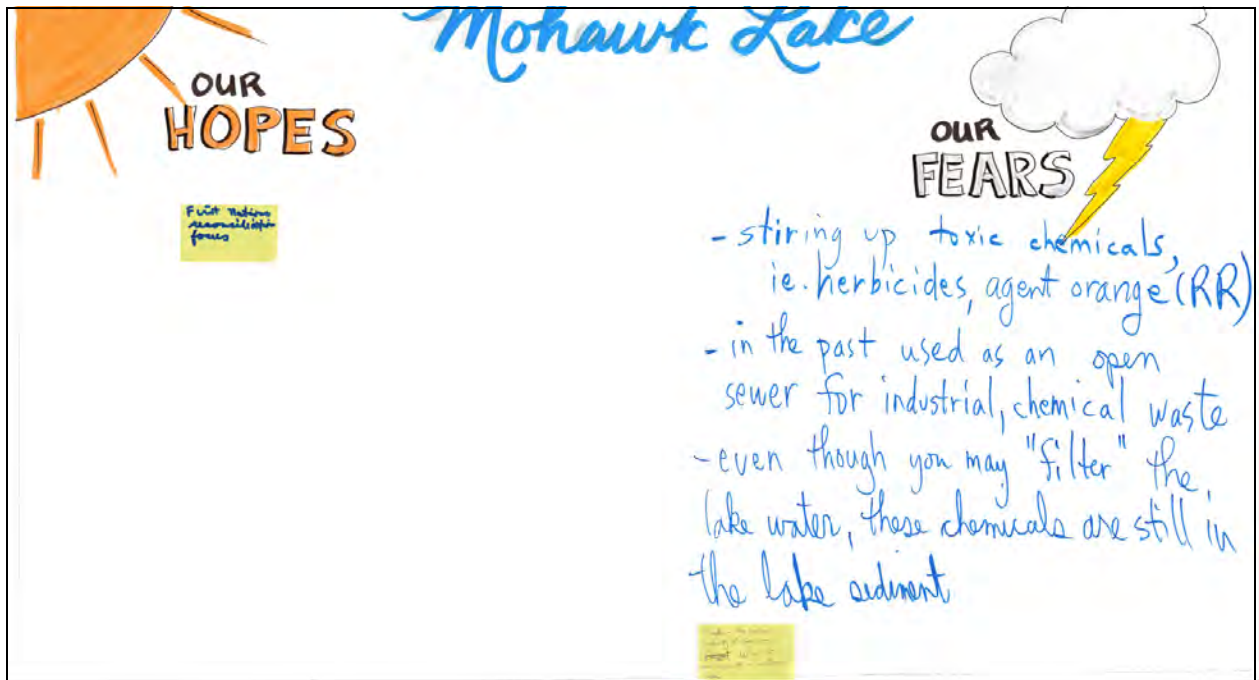 Mohawk Lake
OUR
HOPES
First Nations
reconciliation
focus
OUR
FEARS
- stiring up toxic chemicals,
ie. herbicides, agent orange (RR)
- in the past used as an open
sewer for industrial, chemical waste
- even though you may "filter" the
lake water, these chemicals are still in
the lake sediment